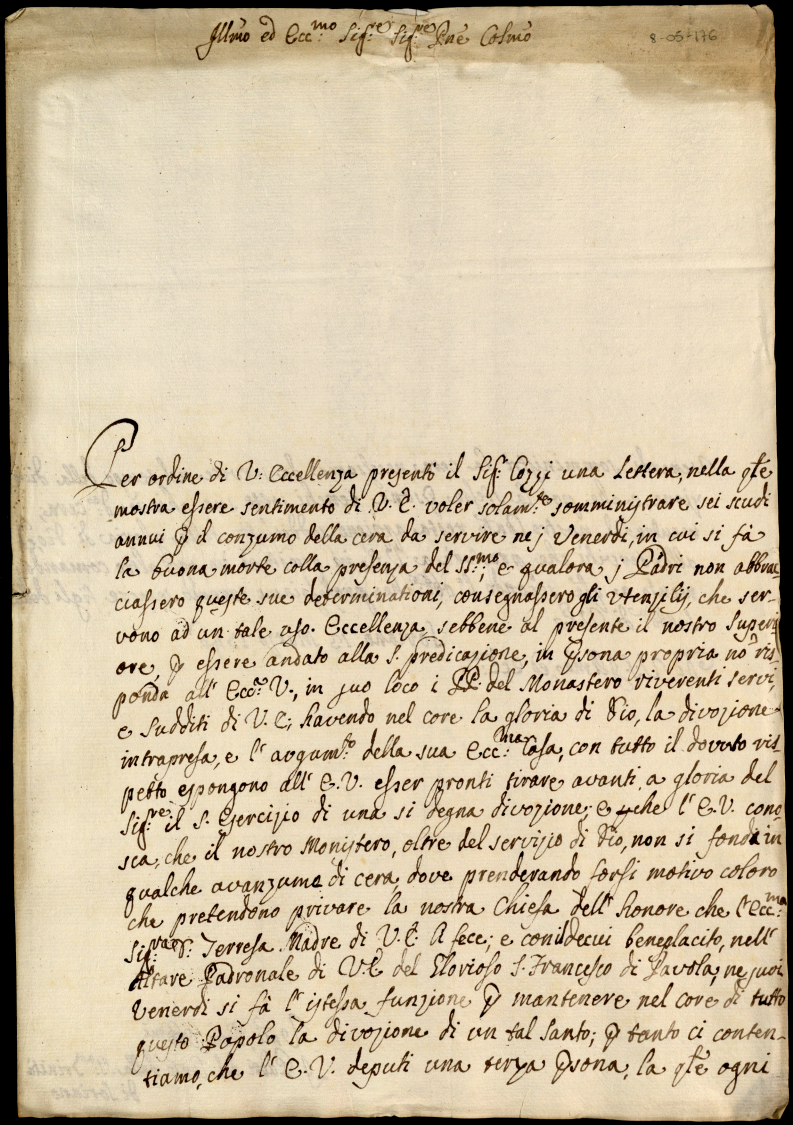 Illmo ed Ecc.mo Sig.re Sig.re Pne Colmo
8-05-176
Per ordine di V: Eccellenza presentò il Sig: Cozzi una Lettera, nella qle
mostra essere sentimento di V. E. voler solam.te somministrare sei scudi
annui p il conzumo della cera da servire nej Venerdì, in cui si fà
la buona morte colla presenza del SS.mo, e qualora j Padri non abbrac-
ciassero queste sue determinationi, consegnassero gli Utensilij, che ser-
vono ad un tale uso. Eccellenza, sebbene al presente il nostro Superi-
ore, p essere andato alla S. predicazione, in psona propria nò ris-
ponda all' Ecc.a V., in suo loco i PP. del Monastero riverenti servi,
e sudditi di V. E; havendo nel core la gloria di Dio, la divozione
intrapresa, e l' augum.to della sua Ecc.ma Casa, con tutto il dovuto ris-
petto espongono all' E. V. esser pronti tirare avanti, a gloria del
Sig.re il S. Esercizio di una si degna divozione; e che l' E. V. cono-
sca, che il nostro Monistero, oltre del servizio di Dio, non si fonda in
qualche avanzume di cera dove prenderando forsi motivo coloro
che pretendono privare la nostra Chiesa dell' honore che l' Ecc.ma
Sig.ra D. Terresa Madre di V. E. fece; e beneplacito, nell'
Altare Padronale di V. E. del Glorioso S. Francesco di Pavola, ne suoi
Venerdì si fà l' istessa funzione p mantenere nel core di tutto
questo Papolo la divozione di un tal Santo; p tanto ci conten-
tiamo, che l' E. V. deputi una terza psona, la qle ogni